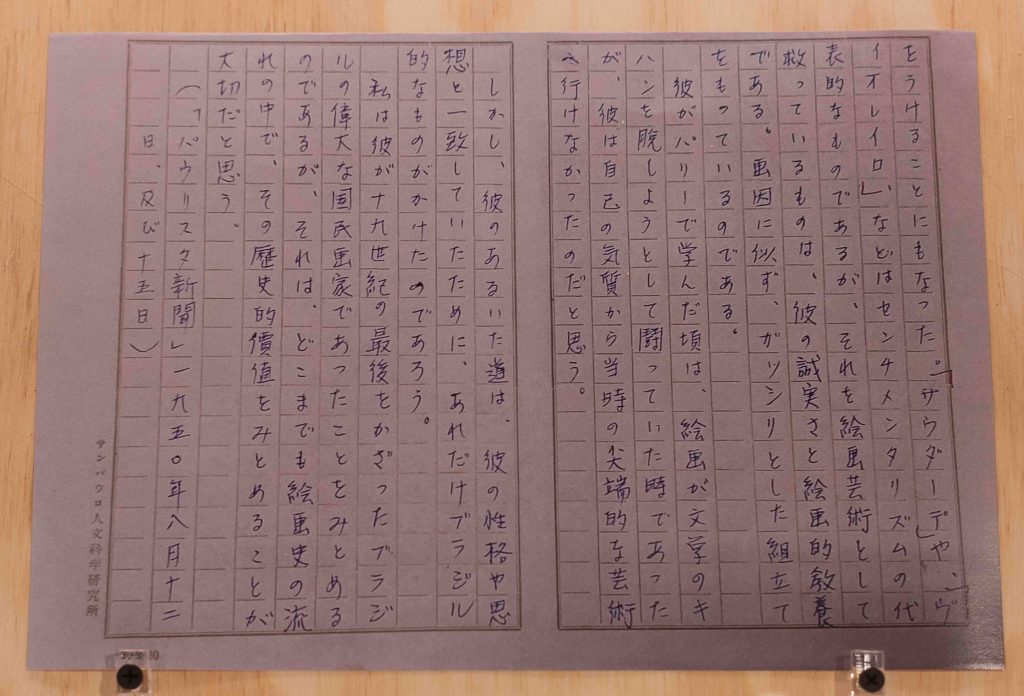 をうけることにもなった。「サウダーデ」や「ヴ
イオレイロ」などはセンチメンタリズムの代
表的なものであるが、それを絵画芸術として
救っているものは、彼の誠実さと絵画的教養
である。画因に似ず、ガッシリとした組立て
をもっているのである。
彼がパリーで学んだ頃は、絵画が文学のキ
ハンを脱しようとして闘っていた時であった
が、彼は自己の気質から当時の尖端的な芸術
へ行けなかったのだと思う。
しかし、彼のあるいた道は、彼の性格や思
想と一致していたために、あれだけブラジル
的なものがかけたのであろう。
私は彼が十九世紀の最後をかざったブラジ
ルの偉大な国民画家であったことをみとめる
のであるが、それは、どこまでも絵画史の流
れの中で、その歴史的價値をみとめることが
大切だと思う。
(「パウリスタ新聞」一九五〇年八月十二
日、及び十五日)
サンパウロ人文科学研究所